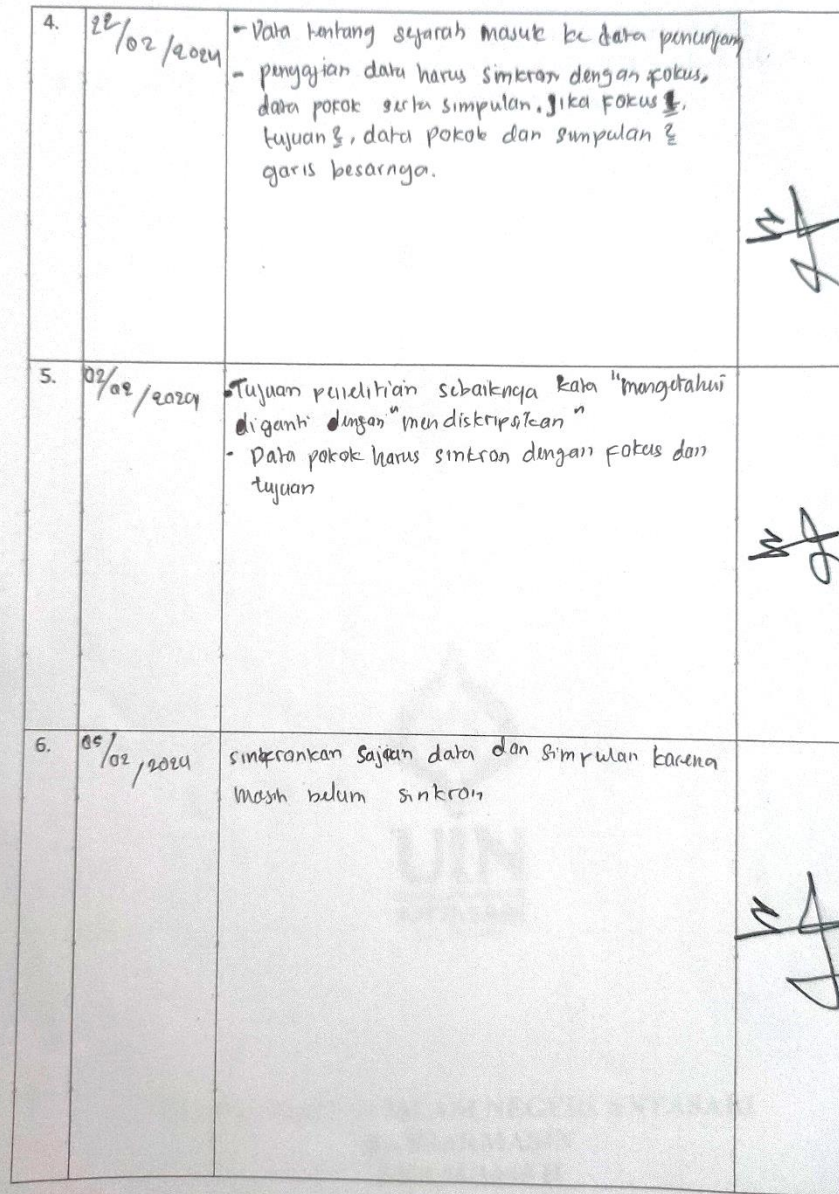 4.
22/02/2024
- Data tentang sejarah masuk ke data penunjang
- penyajian data harus sinkron dengan fokus,
data pokok serta simpulan. Jika Fokus
tujuan 2, data pokok dan simpulan 2
garis besarnya.
5.
02/02/2024
- Tujuan penelitian sebaiknya kata "mengetahui
diganti dengan "mendiskripsikan"
- Data pokok harus sinkron dengan fokus dan
tujuan
6.
05/02/2024
sinkronkan sajian data dan simpulan karena
masih belum sinkron
UIN
ANTASARI
ISLAM NEGERI ANTASARI
BANJARMASIN